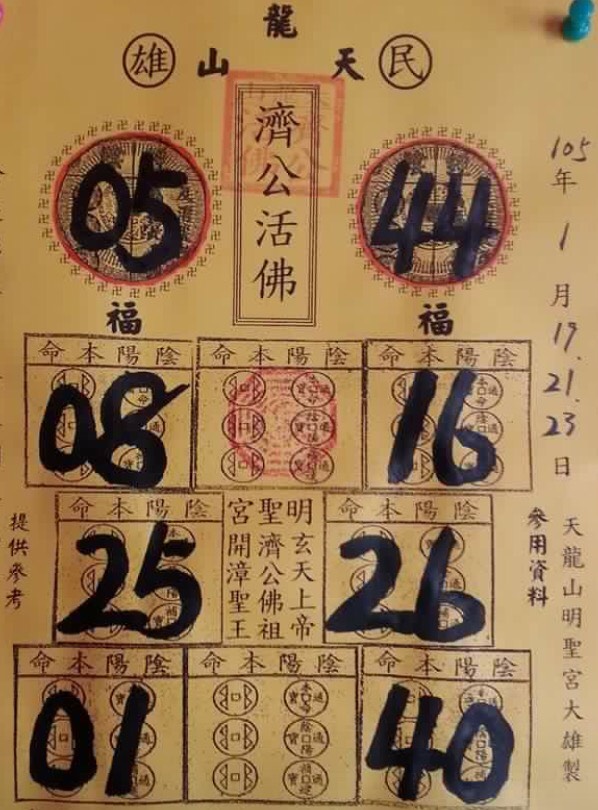 龍
民 天 山 雄
濟公活佛
05
44
福
福
105年1月19.21.23日
陰陽本命
陰陽本命
陰陽本命
08
16
陰陽本命
明聖宮
玄天上帝
濟公佛祖
開漳聖王
陰陽本命
25
26
陰陽本命
陰陽本命
陰陽本命
01
40
參用資料
天龍山明聖宮大雄製
提供參考